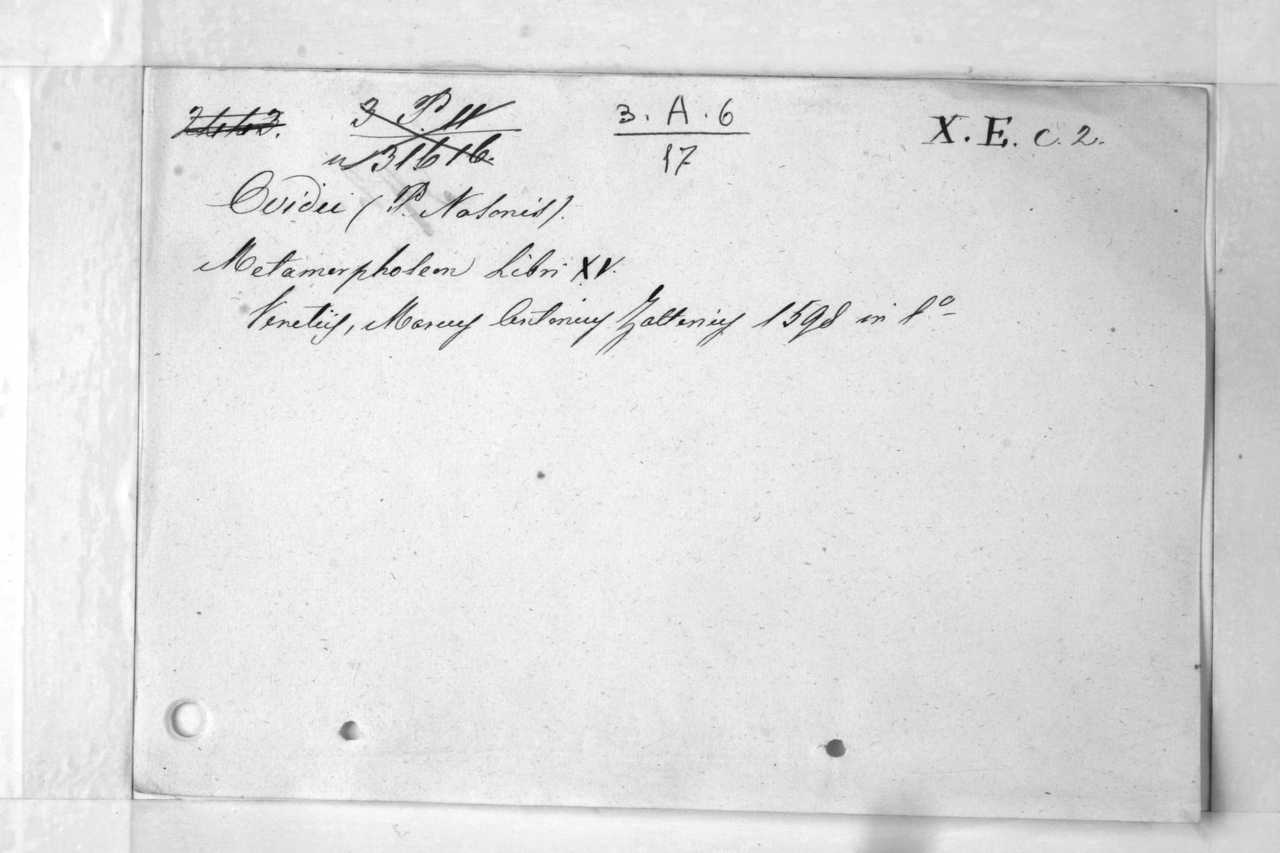 3. A. 6 X. E. C. 2.
17
Ovidii (P. Nasonis).
Metamorphoseon Libri XV.
Venetiis, Marcus Antonius Zalterius 1598 in 8º